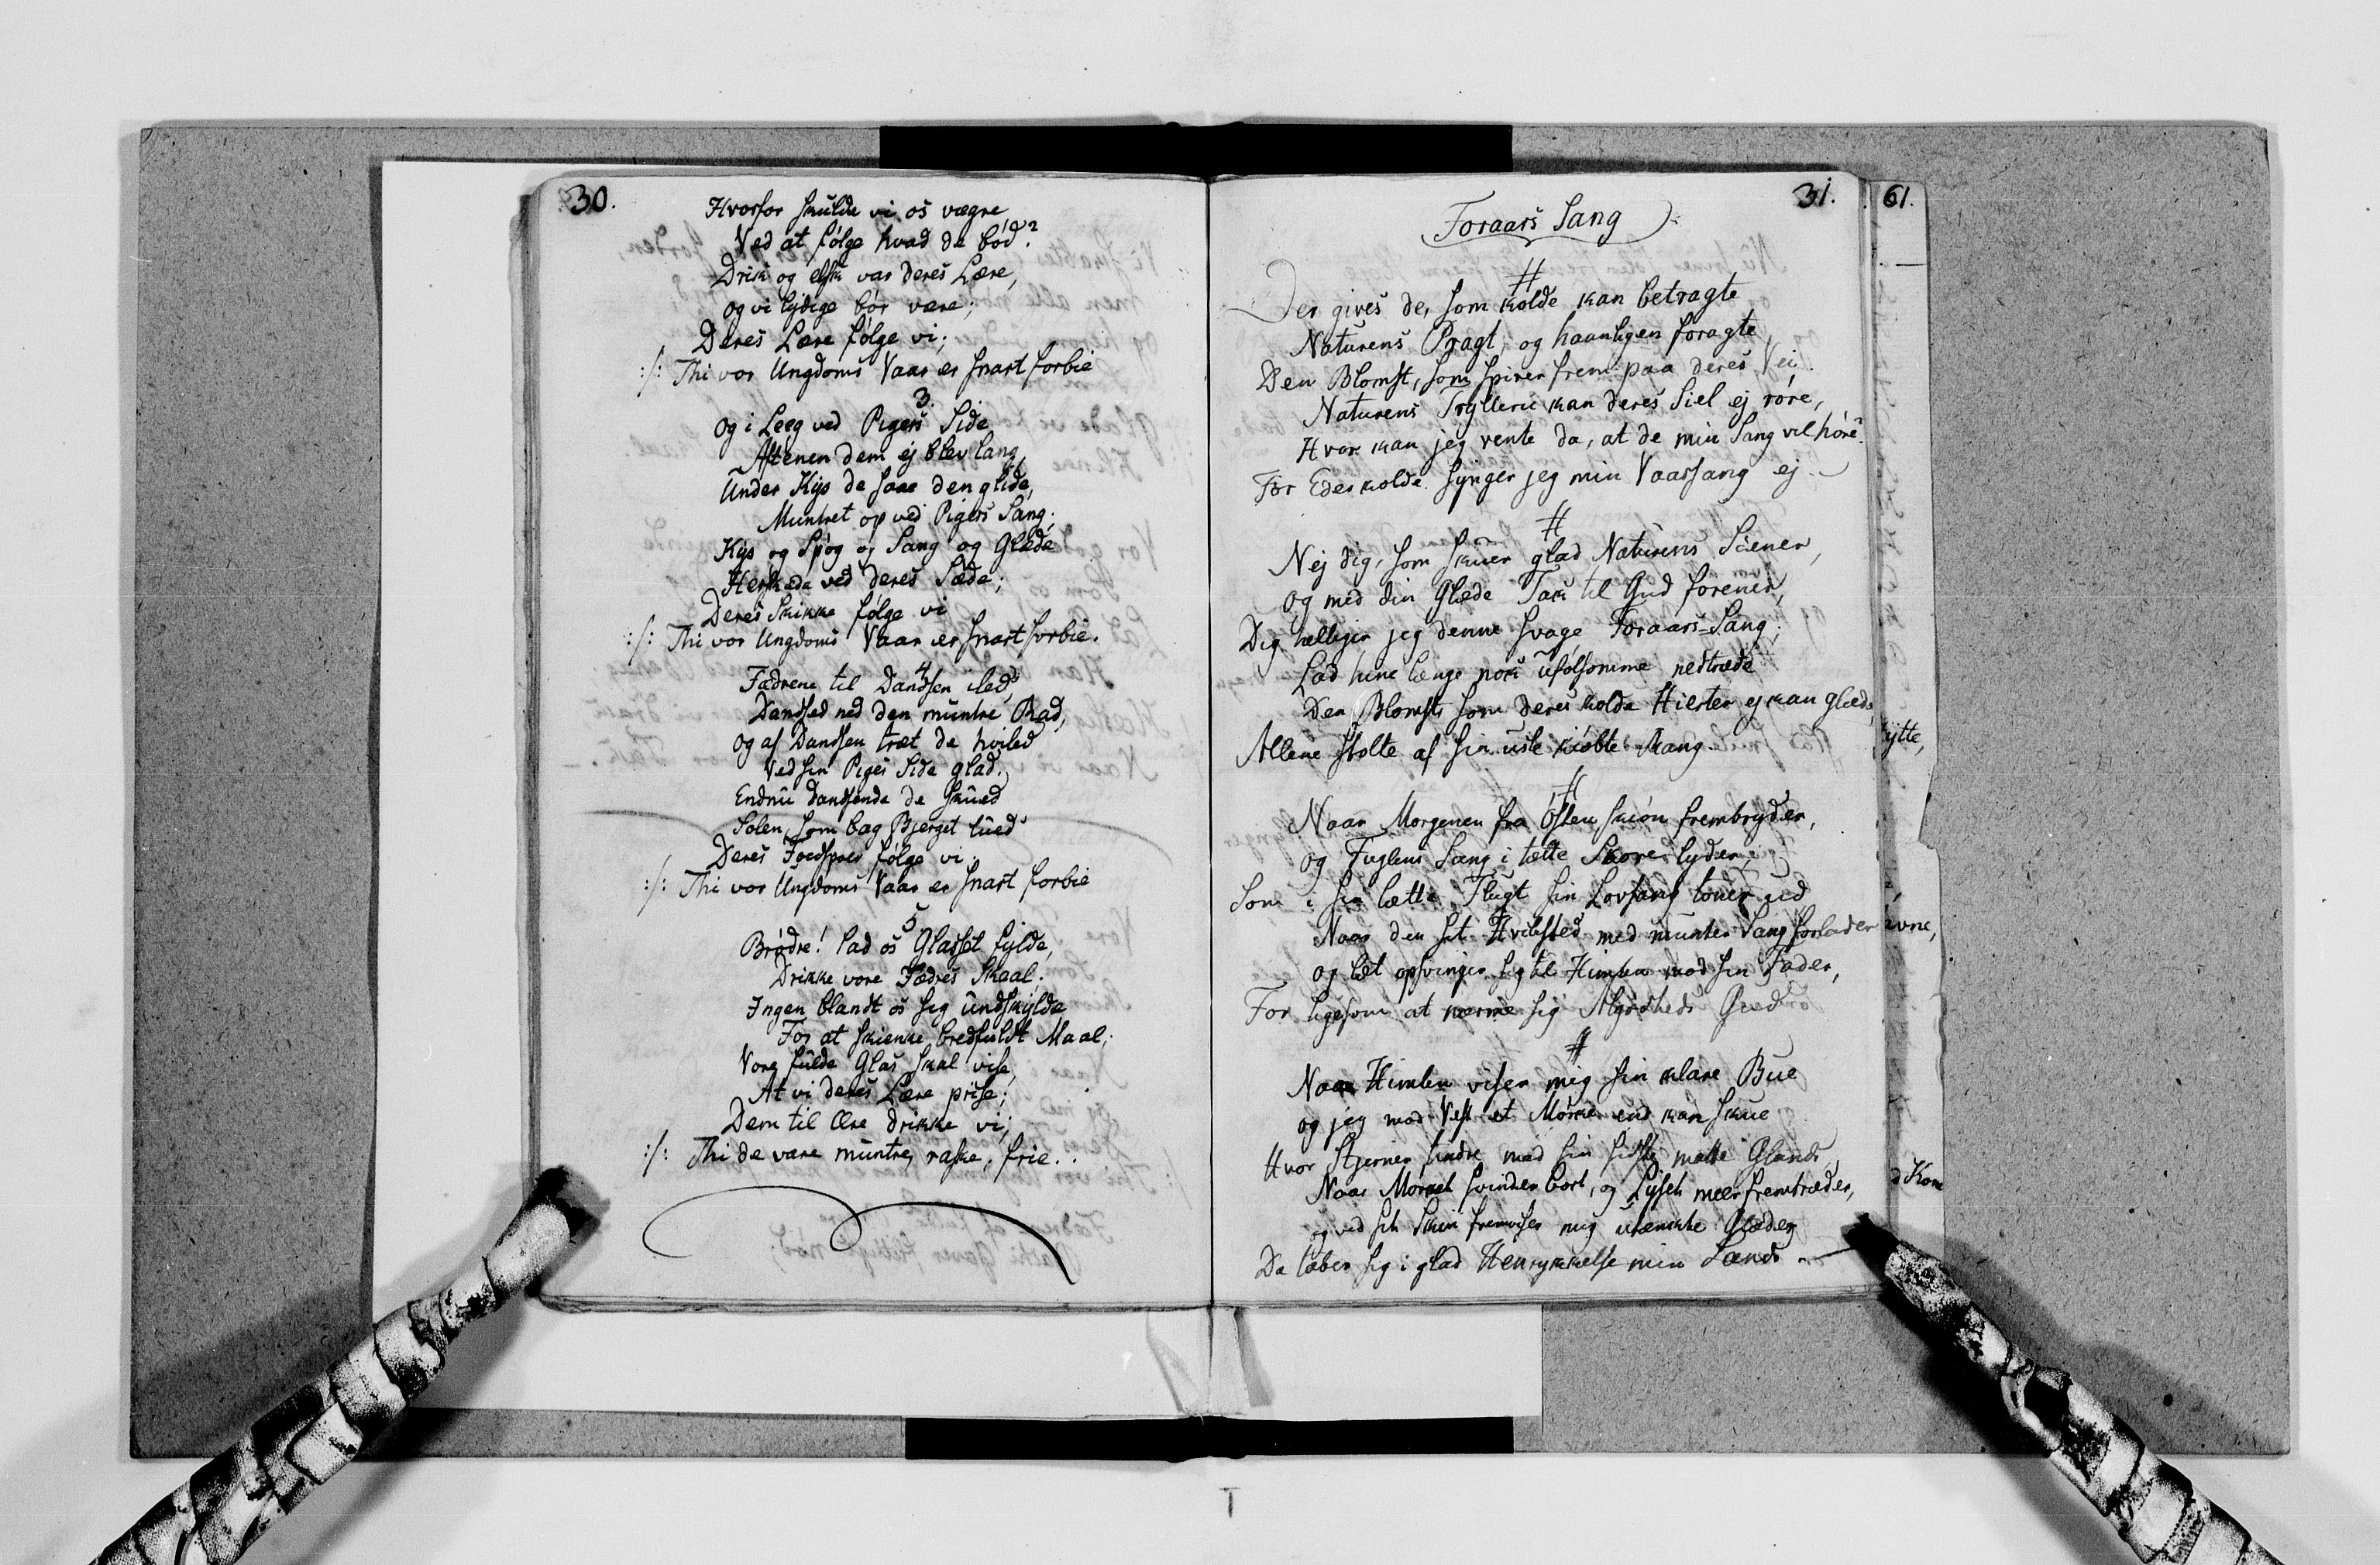 30.
Hvorfor skulde vi os vægre
Ved at følge hvad de bød?
Drik og elsk var deres Lære,
og vi lydige bør være;
Deres Lære følge vi;
:/: Thi vor Ungdoms Vaar er snart forbie
3.
og i Leeg ved Pigers Side
Aftenen dem ej blev lang,
Under Kys de saae den glide,
Muntret op ved Pigers Sang;
Kys og Spøg og Sang og Glæde
Herskede ved deres Sæde;
Deres Skikke følge vi
:/: Thi vor Ungdoms Vaar er snart forbie.
4
Fædrene til Dandsen iled,
Dandsed ned den muntre Rad,
og af Dandsen træt de hviled
Ved sin Piges Side glad.
Endnu dandsende de skued
Solen, som bag Bjerget lued
Deres Foedspoer følge vi.
:/: Thi vor Ungdoms Vaar er snart forbie
5
Brødre! lad os Glasset fylde,
Drikke vore Fædres Skaal;
Ingen blandt os sig undskylde
For at skienke bredfuldt Maal;
Vore fulde Glas skal vise,
At vi deres Lære prise;
Dem til Ære drikke vi;
:/: Thi de vare muntre, raske, frie.
31.
Foraars Sang
#
Der gives de, som kolde kan betragte
Naturens Pragt, og haanligen foragte
Den Blomst, som spirer frem paa deres Vei.
Naturens Trÿllerie kan deres Siel ej røre,
Hvor kan jeg vente da, at de min Sang vil høre?
For Eder kolde synger jeg min Vaarsang ej
#
Nej dig, som skuer glad Naturens Scener,
og med din Glæde Tak til Gud forener,
Dig helliger jeg denne svage Foraars-Sang;
Lad hine længe nok ufølsomme nedtræde
Den Blomst, som deres kolde Hierter ej kan glæde,
Allene stolte af sin usle kiøbte Rang
#
Naar Morgenen fra Østen skiøn frembryder,
og Fuglens Sang i tætte Skove lyder,
Som i sin lætte Flugt sin Lovsang toner ud
Naar den sit Hvilested med munter Sang forlader
og let opsvinger sig til Himlen mod sin Fader,
For ligesom at nærme sig Algodheds Gud
#
Naar Himlen viser mig sin klare Bue
og jeg mod Vest et Mørke end kan skue
Hvor Stjernen tindre med sin sidste matte Glands
Naar Mørket svinder bort, og Lyset meer fremtræder,
og ved sit Skin fremviser mig utænkte Glæder
Da taber sig i glad Henrykkelse min Sands.
61.
ytte,
ævne,
d Kom